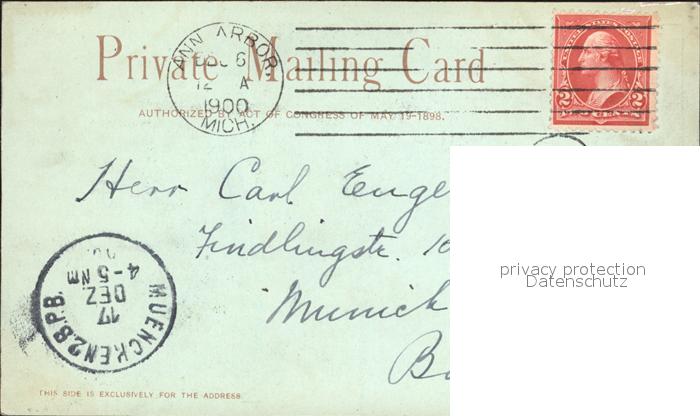 Private Mailing Card
AUTHORIZED BY ACT OF CONGRESS OF MAY 19-1898.
ANN ARBOR,
DEC 6
12 A
1900
MICH.
2 2
Herr Carl Enge
Findlingstr. 10
Munich
B
privacy protection
Datenschutz
MUENCHEN 2 B.P.B.
17
DEZ
4-5 NM
00.
THIS SIDE IS EXCLUSIVELY FOR THE ADDRESS.